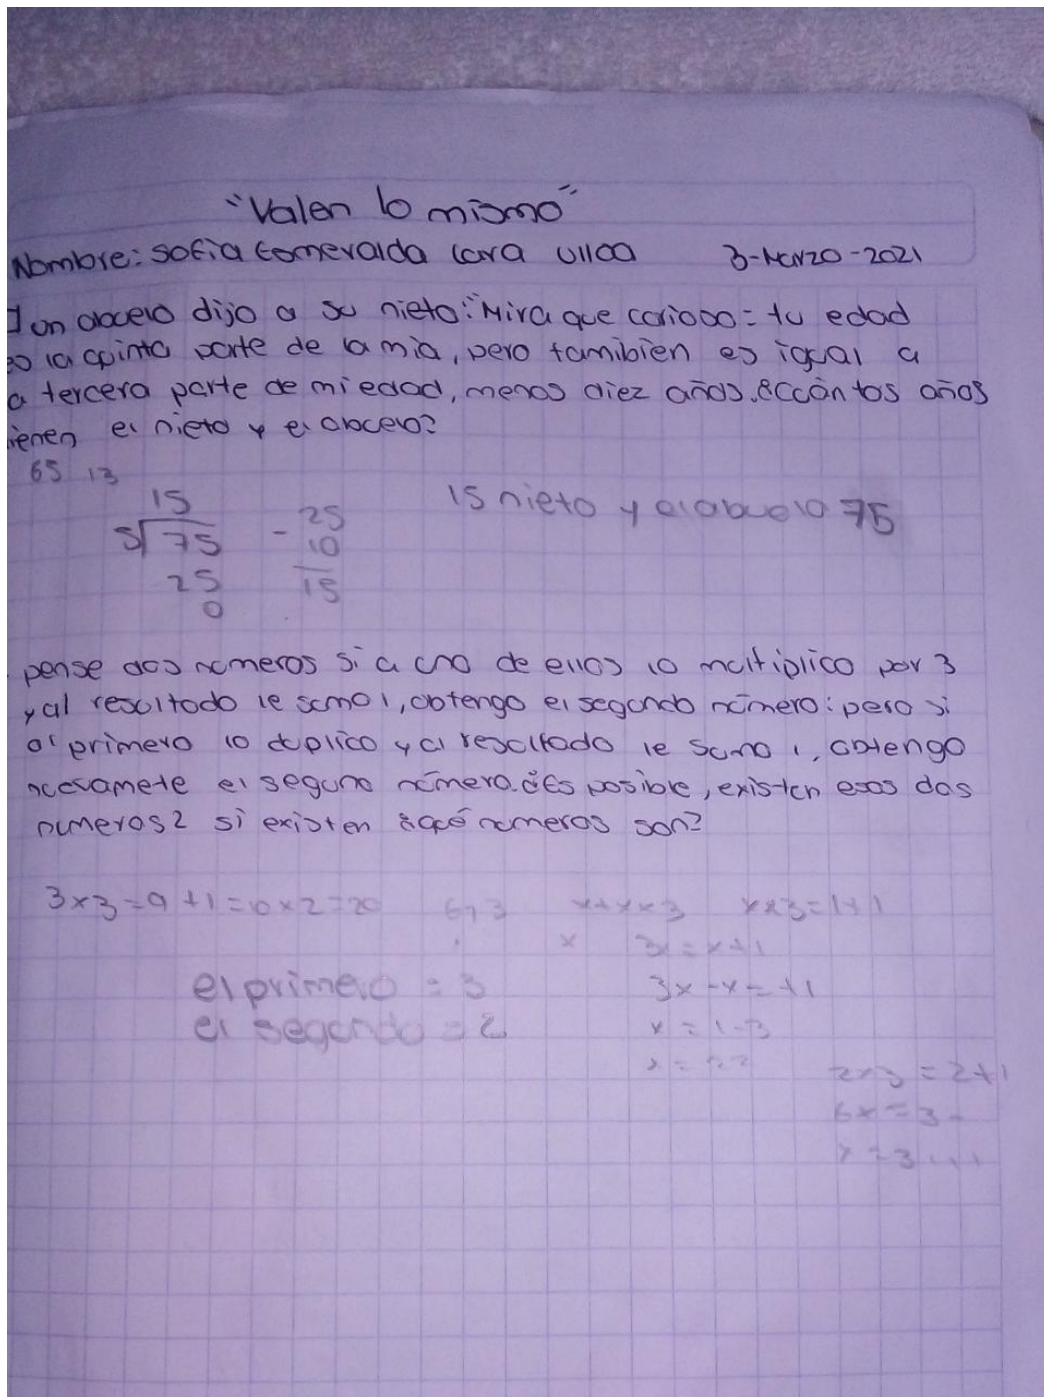 "Valen lo mismo"
Nombre: sofia Esmeralda Lara Ulloa 3-Marzo-2021
1 un abuelo dijo a su nieto: "Mira que curioso = tu edad
es la quinta parte de la mia, pero tamibien es igual a
a tercera parte de mi edad, menos diez años. ¿Cuántos años
ienen el nieto y el abuelo?
65 13
15
5 75 - 25
10
25 15
0
15 nieto y el abuelo 75
pense dos numeros si a uno de ellos lo multiplico por 3
y al resultado le sumo 1, obtengo el segundo número: pero si
al primero lo duplico y al resultado le sumo 1, obtengo
nuevamete el seguno número. ¿Es posible, existen esos dos
numeros? si existen ¿qué numeros son?
3×3=9+1=10×2=20 6,3 x×3=1+1
x 3x=x+1
el primero = 3 3x-x=+1
el segundo = 2 x=1-3
2×3=2+1
6x=3-